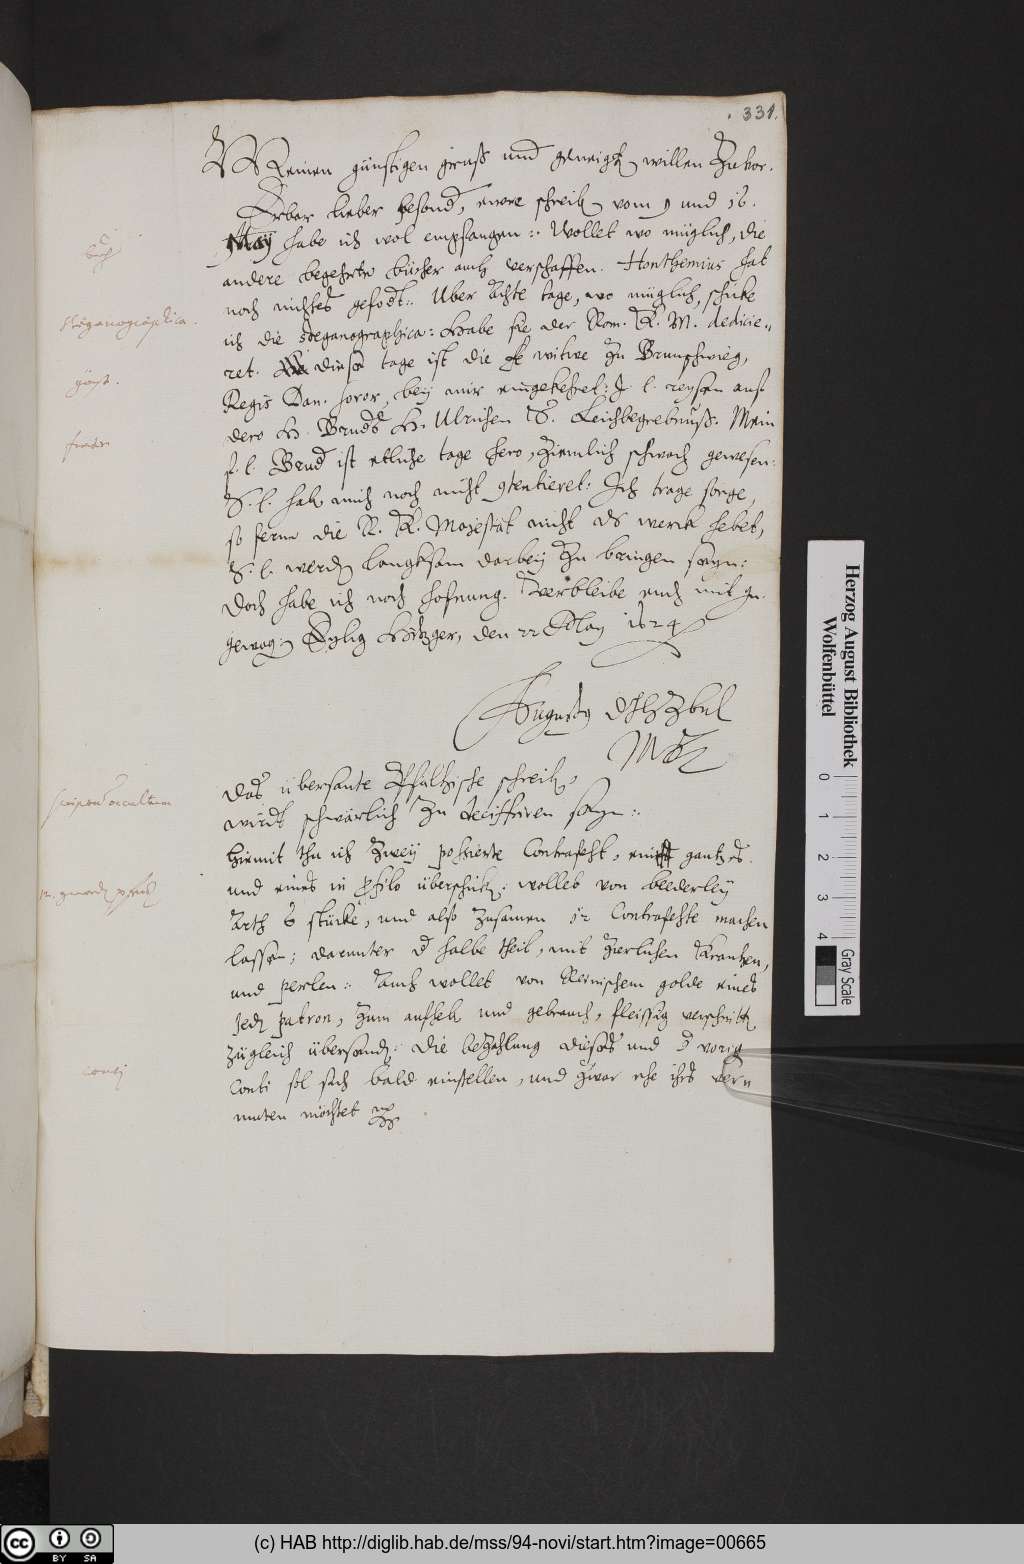 331.
Meinen günstigen gruß und geneigten willen zuvor.
Erbar lieber besonder, ewre schreiben vom 9 und 16.
Maÿ habe ich wol empfangen: Wollet wo müglich, die
andere begehrte bücher auch verschaffen. Honthemius hat
noch nichtes gefodert: Uber Achte tage, wo müglich, schicke
ich die steganographica: habe sie der Röm. K. M. dedicie-
ret. diese tage ist die witwe zu Brunschwieg,
Regis Dan. soror, bey mir eingekehret: l. reysen auf
dero H. Bruders H. Ulrichen Leichbegrebnuß. Mein
f. l. Bruder ist etliche tage hero, ziemlich schwach gewesen:
S. l. habe mich noch nicht contentieret: Ich trage sorge,
so ferne die R. K. Majestät nicht das werck hebet,
S. l. werden langksam darbey zu bringen seyn:
Doch habe ich noch hofnung. Verbleibe euch mit gn.
gewogen Eylig Hitzger, den 22 May 1624
Augustus
buch
steganographica.
gäst.
frater
Das übersante Pfaltzische schreiben,
wirdt schwärlich zu deciffriren seyn:
hiemit thu ich zweÿ possierte Contrafeht, gantzes
und eines in profilo überschicken: wollet von beederleÿ
Arth 6 stücke, und also zusamen 12 Contrafehte machen
lassen; darunter die halbe theil, mit zierlichen Krantzen,
und perlen: Auch wollet von Reinischem golde eines
jeden patron, zum aufheben und gebrauch, fleissig verschickt
zugleich übersenden: die bezahlung dieses und der vorigen
Conti sol sich bald einstellen, und zwar ehe ihrs ver
muten möchtet
scriptum occultum
conti
Herzog August Bibliothek
Wolfenbüttel
0 1 2 3 4
Gray Scale
cc BY SA
(c) HAB http://diglib.hab.de/mss/94-novi/start.htm?image=00665